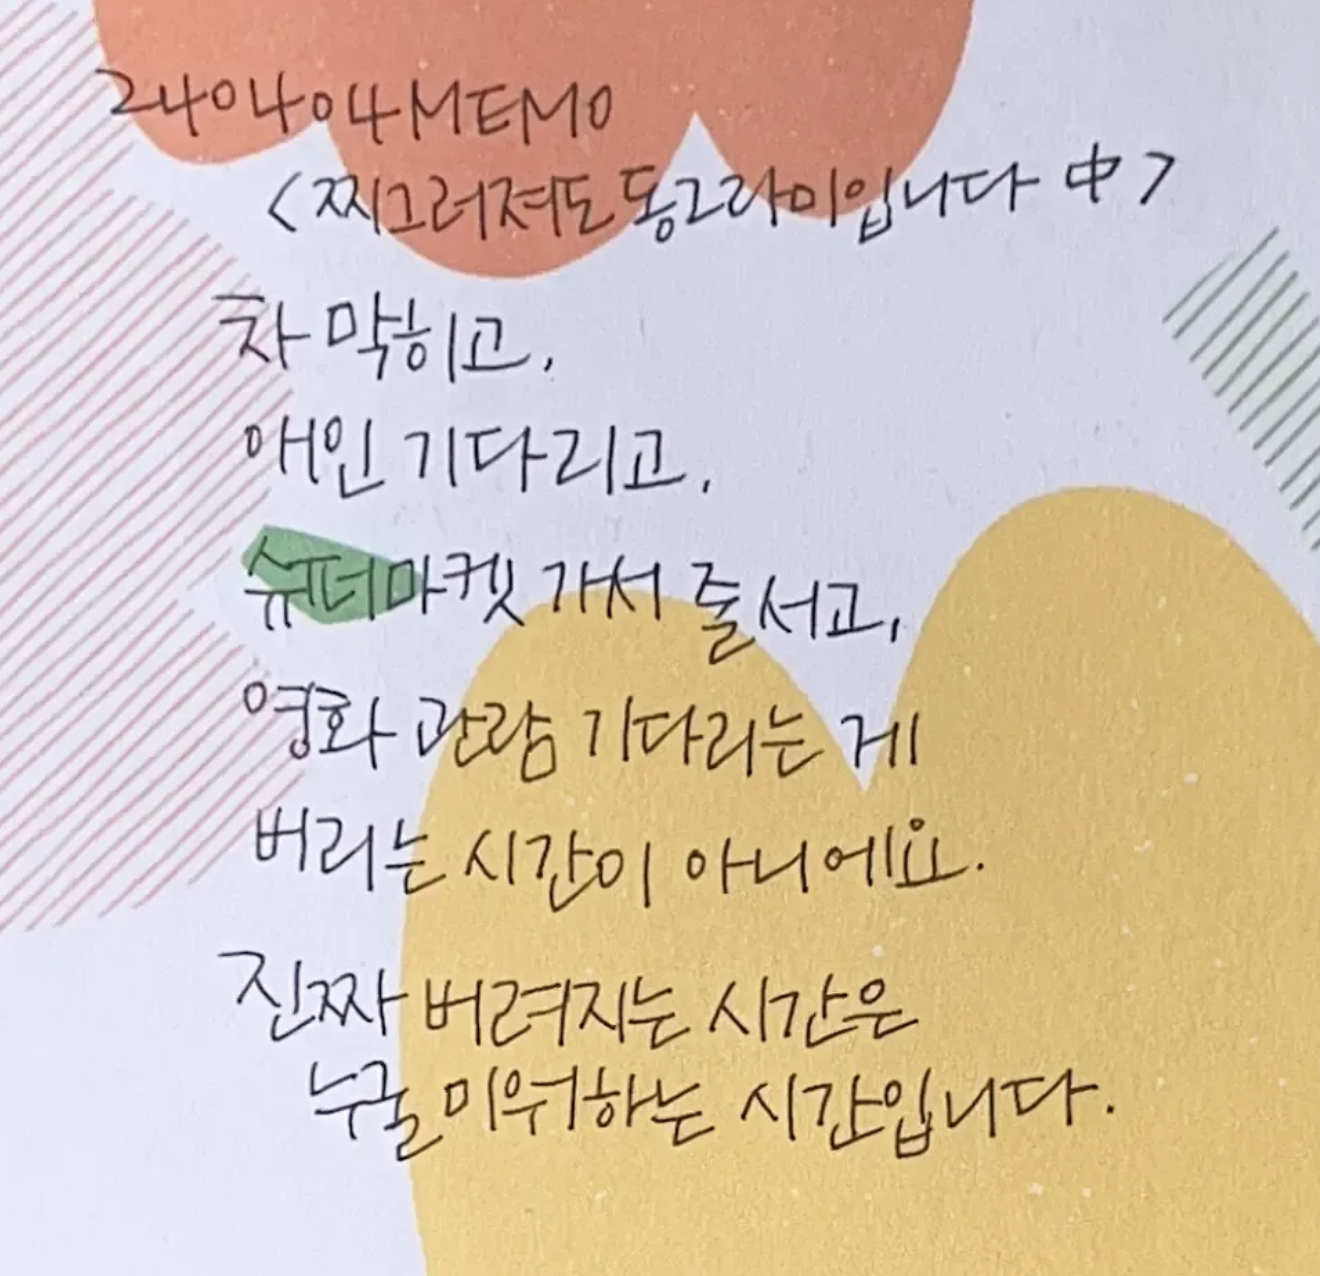 240404 MEMO
<찌그러져도 동그라미입니다 中>
차 막히고,
애인 기다리고,
슈퍼마켓 가서 줄 서고,
영화 관람 기다리는 게
버리는 시간이 아니에요.
진짜 버려지는 시간은
누굴 미워하는 시간입니다.